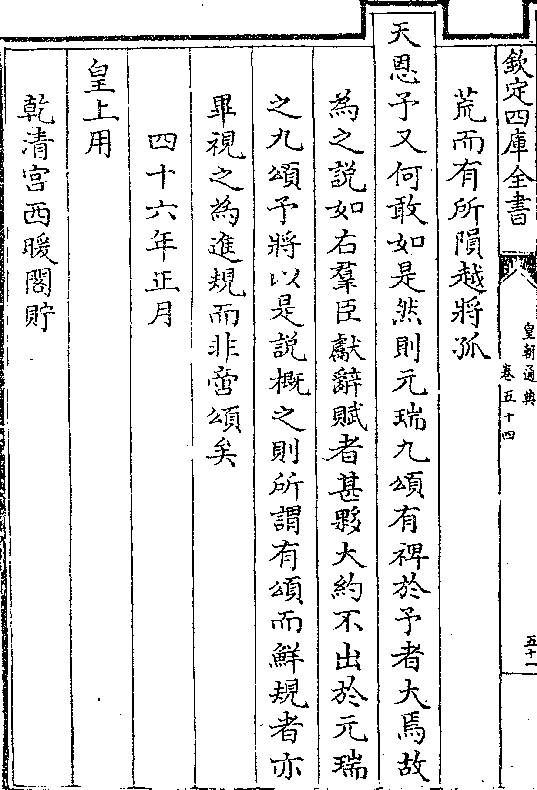 欽定四庫全書
皇朝通典
卷五十四
五十一
荒而有所隕越將孤
天恩予又何敢如是然則元瑞九頌有裨於予者大焉故
為之説如右羣臣獻辭賦者甚夥大約不出於元瑞
之九頌予將以是説概之則所謂有頌而鮮規者亦
畢視之為進規而非啻頌矣
四十六年正月
皇上用
乾清宫西暖閣貯